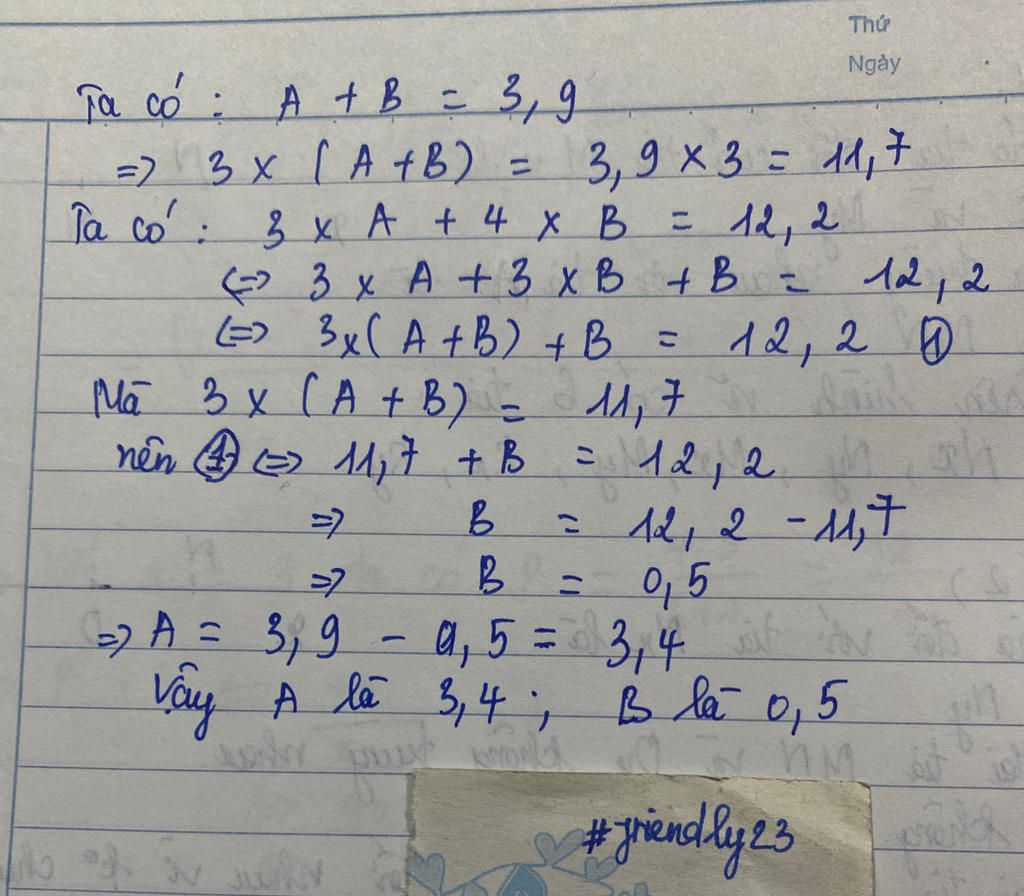 Thứ
Ngày
Ta có : A + B = 3,9
=> 3 x (A + B) = 3,9 x 3 = 11,7
Ta có : 3 x A + 4 x B = 12,2
<=> 3 x A + 3 x B + B = 12,2
<=> 3 x (A + B) + B = 12,2 ①
Mà 3 x (A + B) = 11,7
nên ① <=> 11,7 + B = 12,2
=> B = 12,2 - 11,7
=> B = 0,5
=> A = 3,9 - 0,5 = 3,4
Vậy A là 3,4 ; B là 0,5
#friendly23